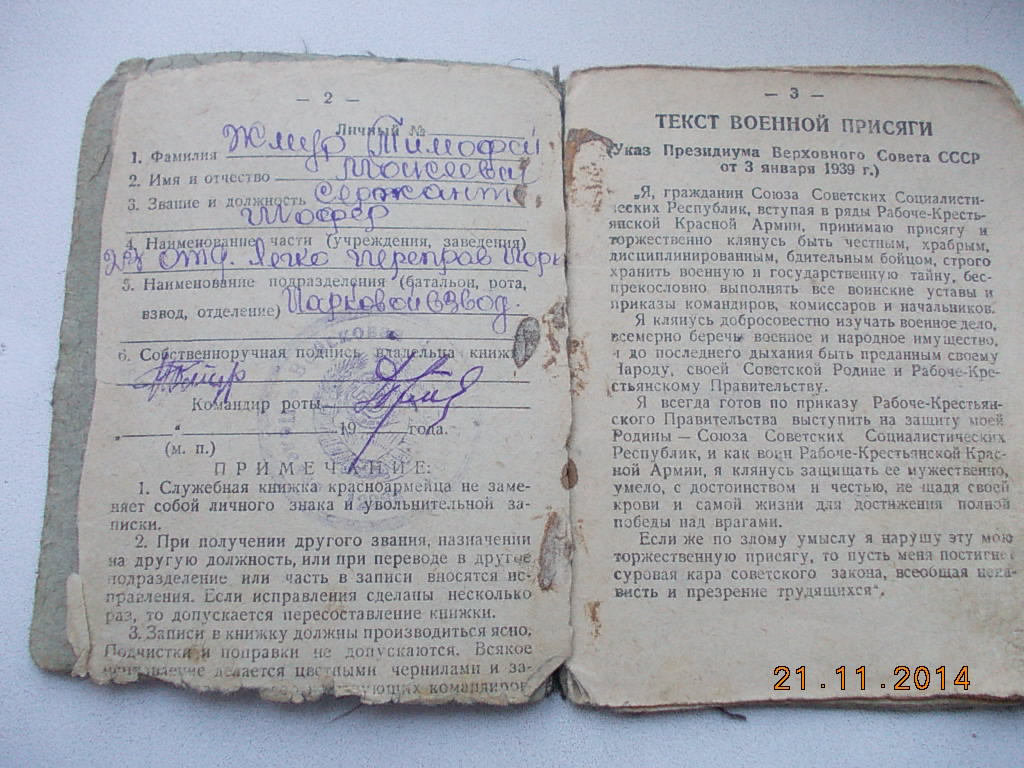 — 2 —
Личный №
1. Фамилия Жмур Тимофей
2. Имя и отчество Моисеевич
3. Звание и должность Сержант
Шофер
4. Наименование части (учреждения, заведения)
Легко Переправ Парк
5. Наименование подразделения (батальон, рота,
взвод, отделение) Парковой взвод.
6. Собственноручная подпись владельца книжк
Жмур
Командир роты
„ “ 19 года.
(м. п.)
ПРИМЕЧАНИЕ:
1. Служебная книжка красноармейца не заме-
няет собой личного знака и увольнительной за-
писки.
2. При получении другого звания, назначении
на другую должность, или при переводе в другое
подразделение или часть в записи вносятся ис-
правления. Если исправления сделаны несколько
раз, то допускается пересоставление книжки.
3. Записи в книжку должны производиться ясно.
Подчистки и поправки не допускаются. Всякое
делается цветными чернилами и за-
командиров
— 3 —
ТЕКСТ ВОЕННОЙ ПРИСЯГИ
(Указ Президиума Верховного Совета СССР
от 3 января 1939 г.)
„Я, гражданин Союза Советских Социалисти-
ческих Республик, вступая в ряды Рабоче-Кресть-
янской Красной Армии, принимаю присягу и
торжественно клянусь быть честным, храбрым,
дисциплинированным, бдительным бойцом, строго
хранить военную и государственную тайну, бес-
прекословно выполнять все воинские уставы и
приказы командиров, комиссаров и начальников.
Я клянусь добросовестно изучать военное дело,
всемерно беречь военное и народное имущество,
и до последнего дыхания быть преданным своему
Народу, своей Советской Родине и Рабоче-Кре-
стьянскому Правительству.
Я всегда готов по приказу Рабоче-Крестьян-
ского Правительства выступить на защиту моей
Родины — Союза Советских Социалистических
Республик, и как воин Рабоче-Крестьянской Крас-
ной Армии, я клянусь защищать ее мужественно,
умело, с достоинством и честью, не щадя своей
крови и самой жизни для достижения полной
победы над врагами.
Если же по злому умыслу я нарушу эту мою
торжественную присягу, то пусть меня постигнет
суровая кара советского закона, всеобщая нена-
висть и презрение трудящихся“.
21.11.2014